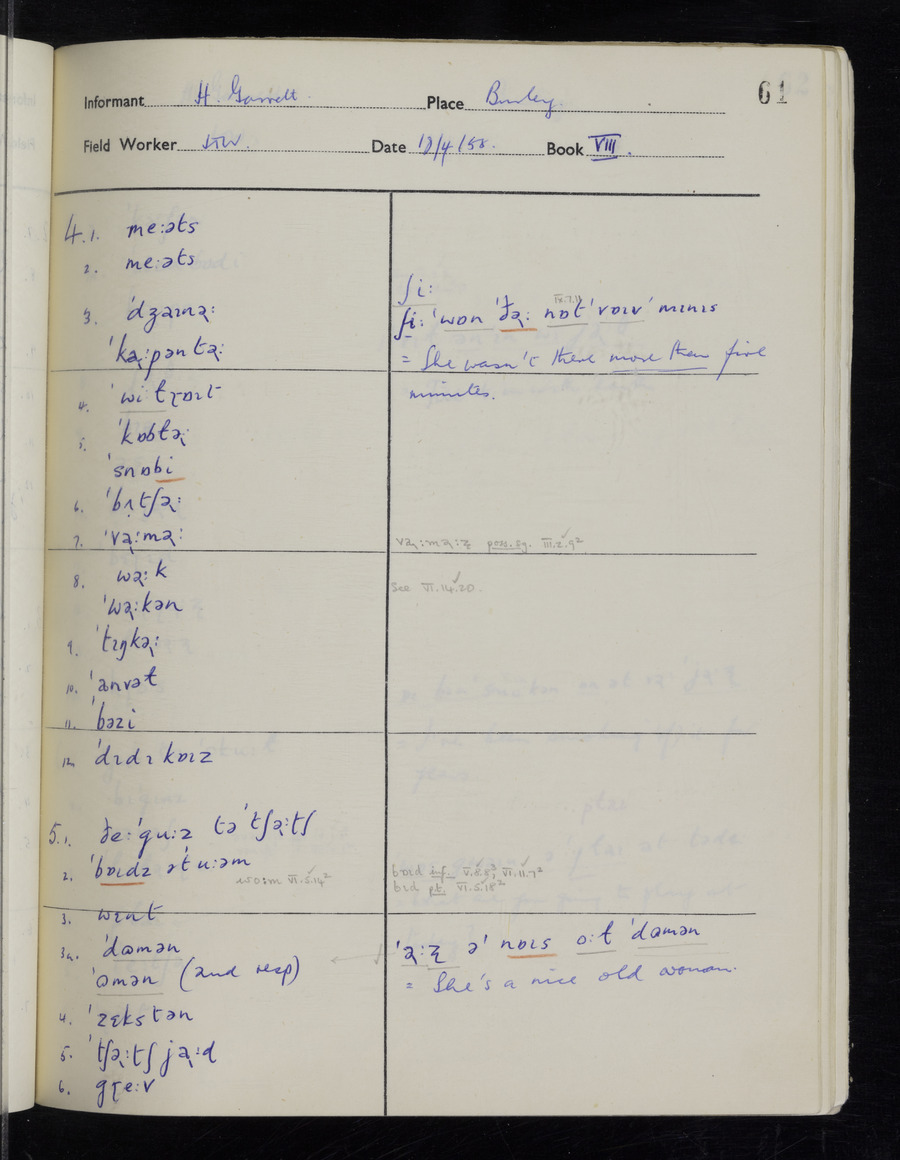 61
Informant H. Garrett. Place Burley.
Field Worker Date 18/4/58. Book VIII.
4.1. me:əts
2. me:əts
3. ˈdʒaɪnə˞:
ˈka˞:pəntə˞:
4. ˈwitɽɒɪt
5. ˈkɒbtə˞:
ˈsnɒbi
6. ˈbʌtʃə˞:
7. ˈva˞:mə˞:
8. wə˞:k
ˈwə˞:kən
9. ˈtɪŋkə˞:
10. ˈanvət
11. ˈbəzi
12. ˈdɪdɪkɒɪz
5.1. ðe:ˈgu:z təˈtʃə˞:tʃ
2. ˈbɒɪdz ət u:əm
wo:m VI.5.14²
3. wɛnt
3a. ˈdɑmən
ˈɑmən (2nd resp)
4. ˈzɛkstən
5. ˈtʃə˞:tʃ ja˞:d
6. gɽe:v
ʃi:
IX.7.11
ʃi: ˈwɒn ˈðə˞: nɒt ˈvɒɪv ˈmɪnɪs
= She wasn't there more than five
minutes.
va˞:mə˞:ʐ poss. sg. III.2.9²
See VI.14.20.
bɒɪd inf. V.8.8³, VI.11.7²
bɪd pt. VI.5.18²
ˈə˞:ʐ əˈ nɒɪs o:t ˈdɑmən
= She's a nice old woman.